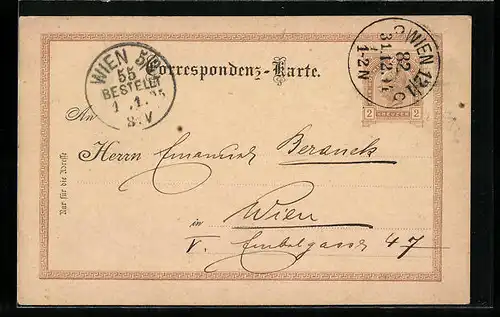 WIEN
55
BESTELLT
1.1.95
8.V
Correspondenz-Karte.
WIEN 12/1
82
31.12.94
1-2 N
C
2 KREUZER 2
An
Herrn Emanuel Beranek
Nur für die Adresse
in Wien
V. Embelgasse 47